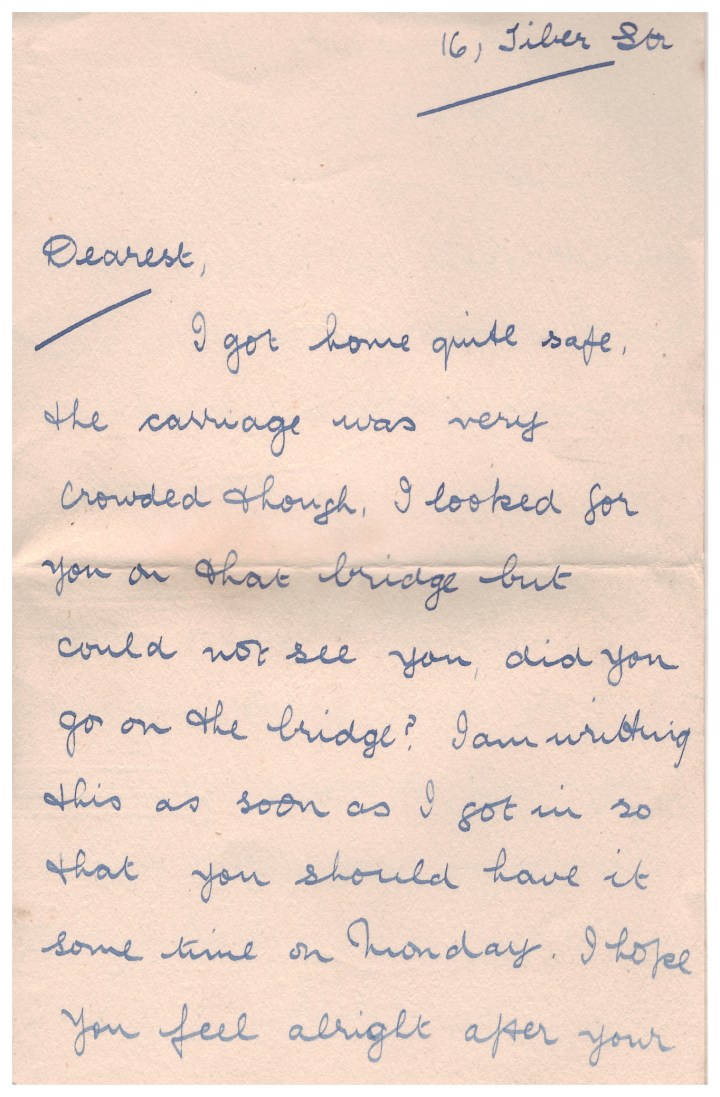 16, Tiber Str
Dearest,
I got home quite safe,
the carriage was very
crowded though, I looked for
you on that bridge but
could not see you, did you
go on the bridge? I am writting
this as soon as I got in so
that you should have it
some time on Monday. I hope
you feel alright after your